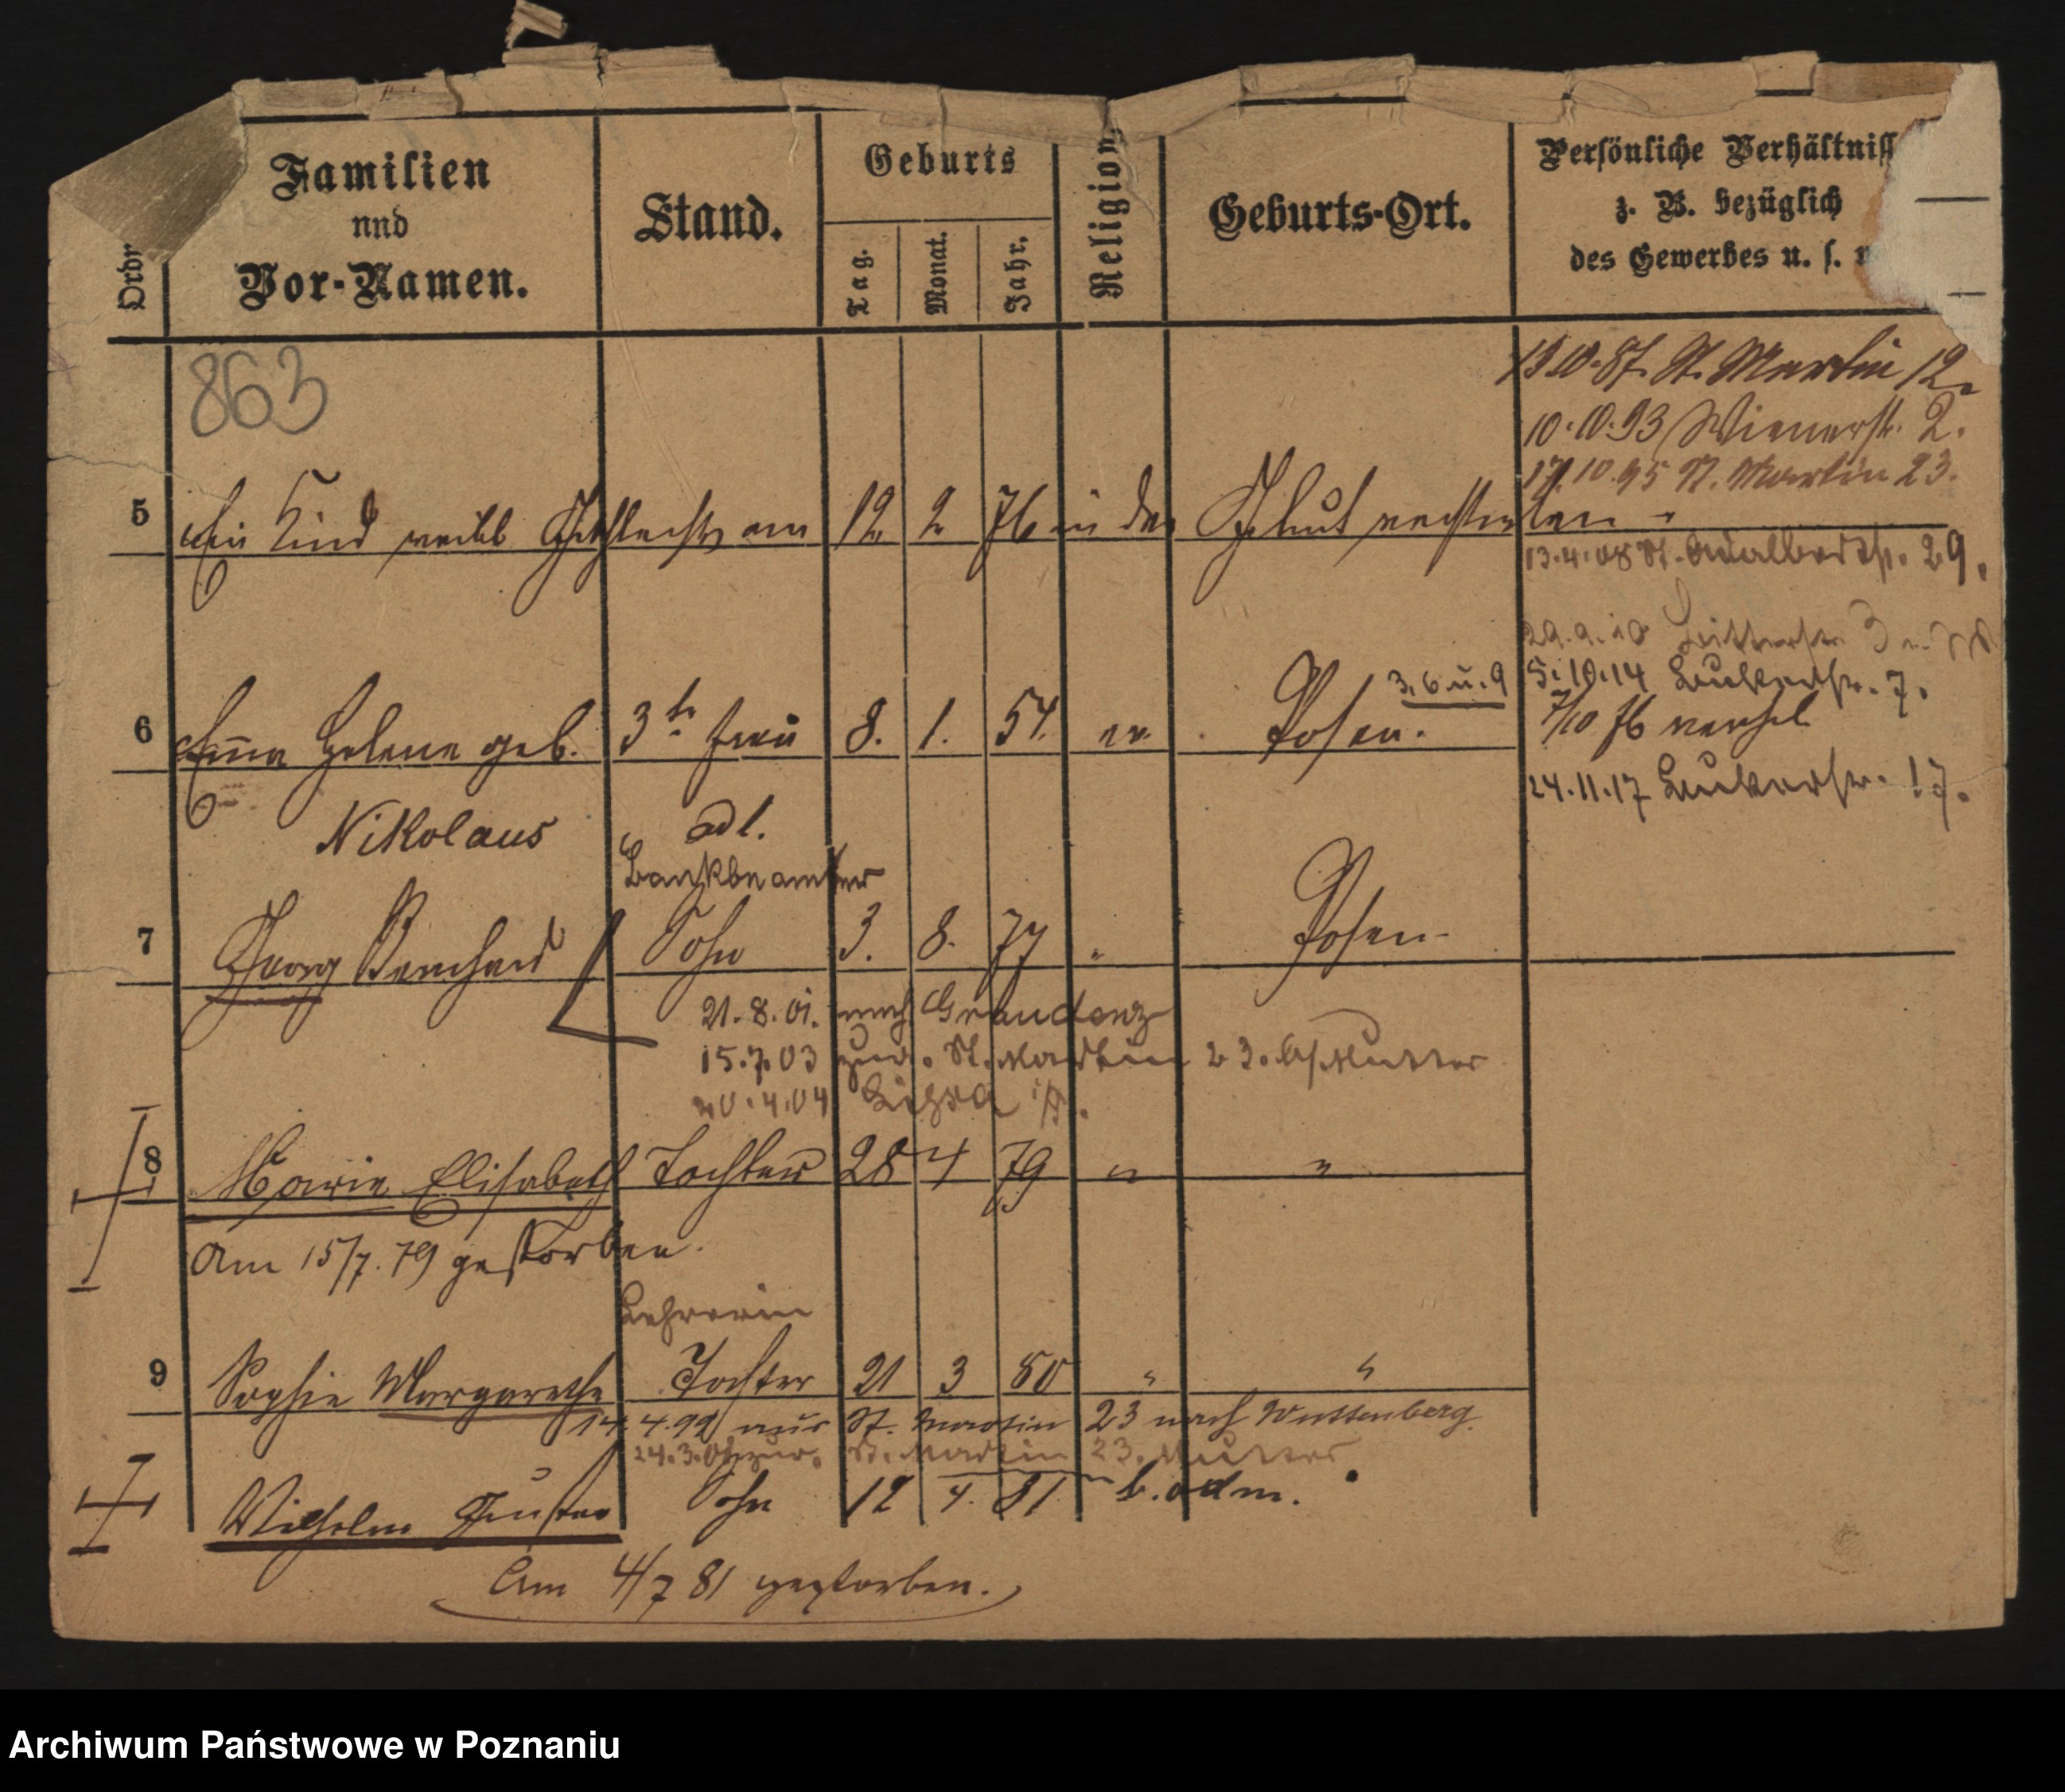 Familien
nnd
Vor-Namen.
Stand.
Geburts
Tag.
Monat.
Jahr.
Religion.
Geburts-Ort.
Persönliche Verhältniss
z. B. bezüglich
des Gewerbes u. s. w
Ordn
863
13.10.87. St. Martin 12.
10.10.93 Wienerstr. 2.
17.10.95 St. Martin 23.
5 Ein Kind weibl Geschlechts am 12 2 76 in der Geburt verstorben
13.4.08 St. Adalbertstr. 29.
29.9.10 Ritterstr. 3
3. 6 u. 9 5.10.14 Luisenstr. 7.
6 Emma Helene geb. 3te Frau 8. 1. 54. ev Posen. 7/10 76 verehel
24.11.17 17.
Nikolaus adl.
Bankbeamter
7 Georg Bernhard Sohn 3. 8. 77 " Posen
21.8.01. nach Graudenz
15.7.03 zur. St. Martin 23. b/Mutter
20.4.04 Lissa i/P.
8 Marie Elisabeth Tochter 28 4 79 " "
Am 15/7. 79 gestorben.
Lehrerin
9 Sophie Margarethe Tochter 21 3 80 " "
14.4.99 aus St. Martin 23 nach Wittenberg.
24.3. zur. St. Martin 23. Mutter
Wilhelm Gustav Sohn 12 4. 81 b. adm.
Am 4/7 81 gestorben.
Archiwum Państwowe w Poznaniu